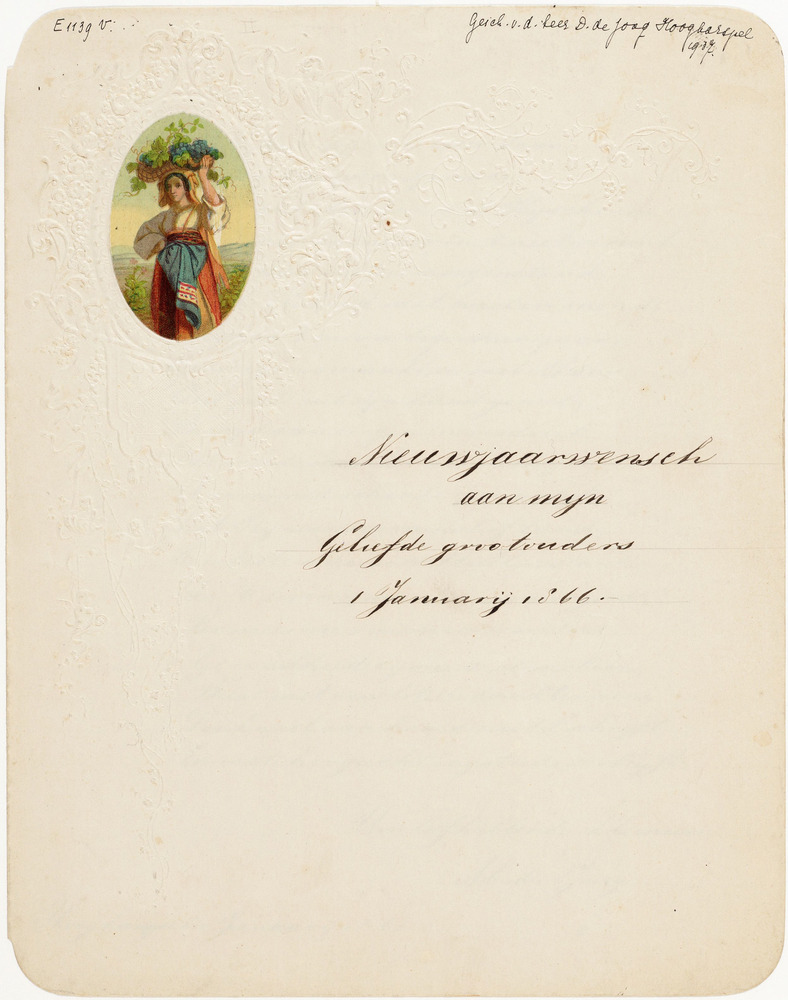 E1139 V.
Gesch. v. d. heer D. de Jong Hoogkarspel
1937.
Nieuwjaarwensch
aan mijn
Geliefde grootouders
1 Januarij 1866.